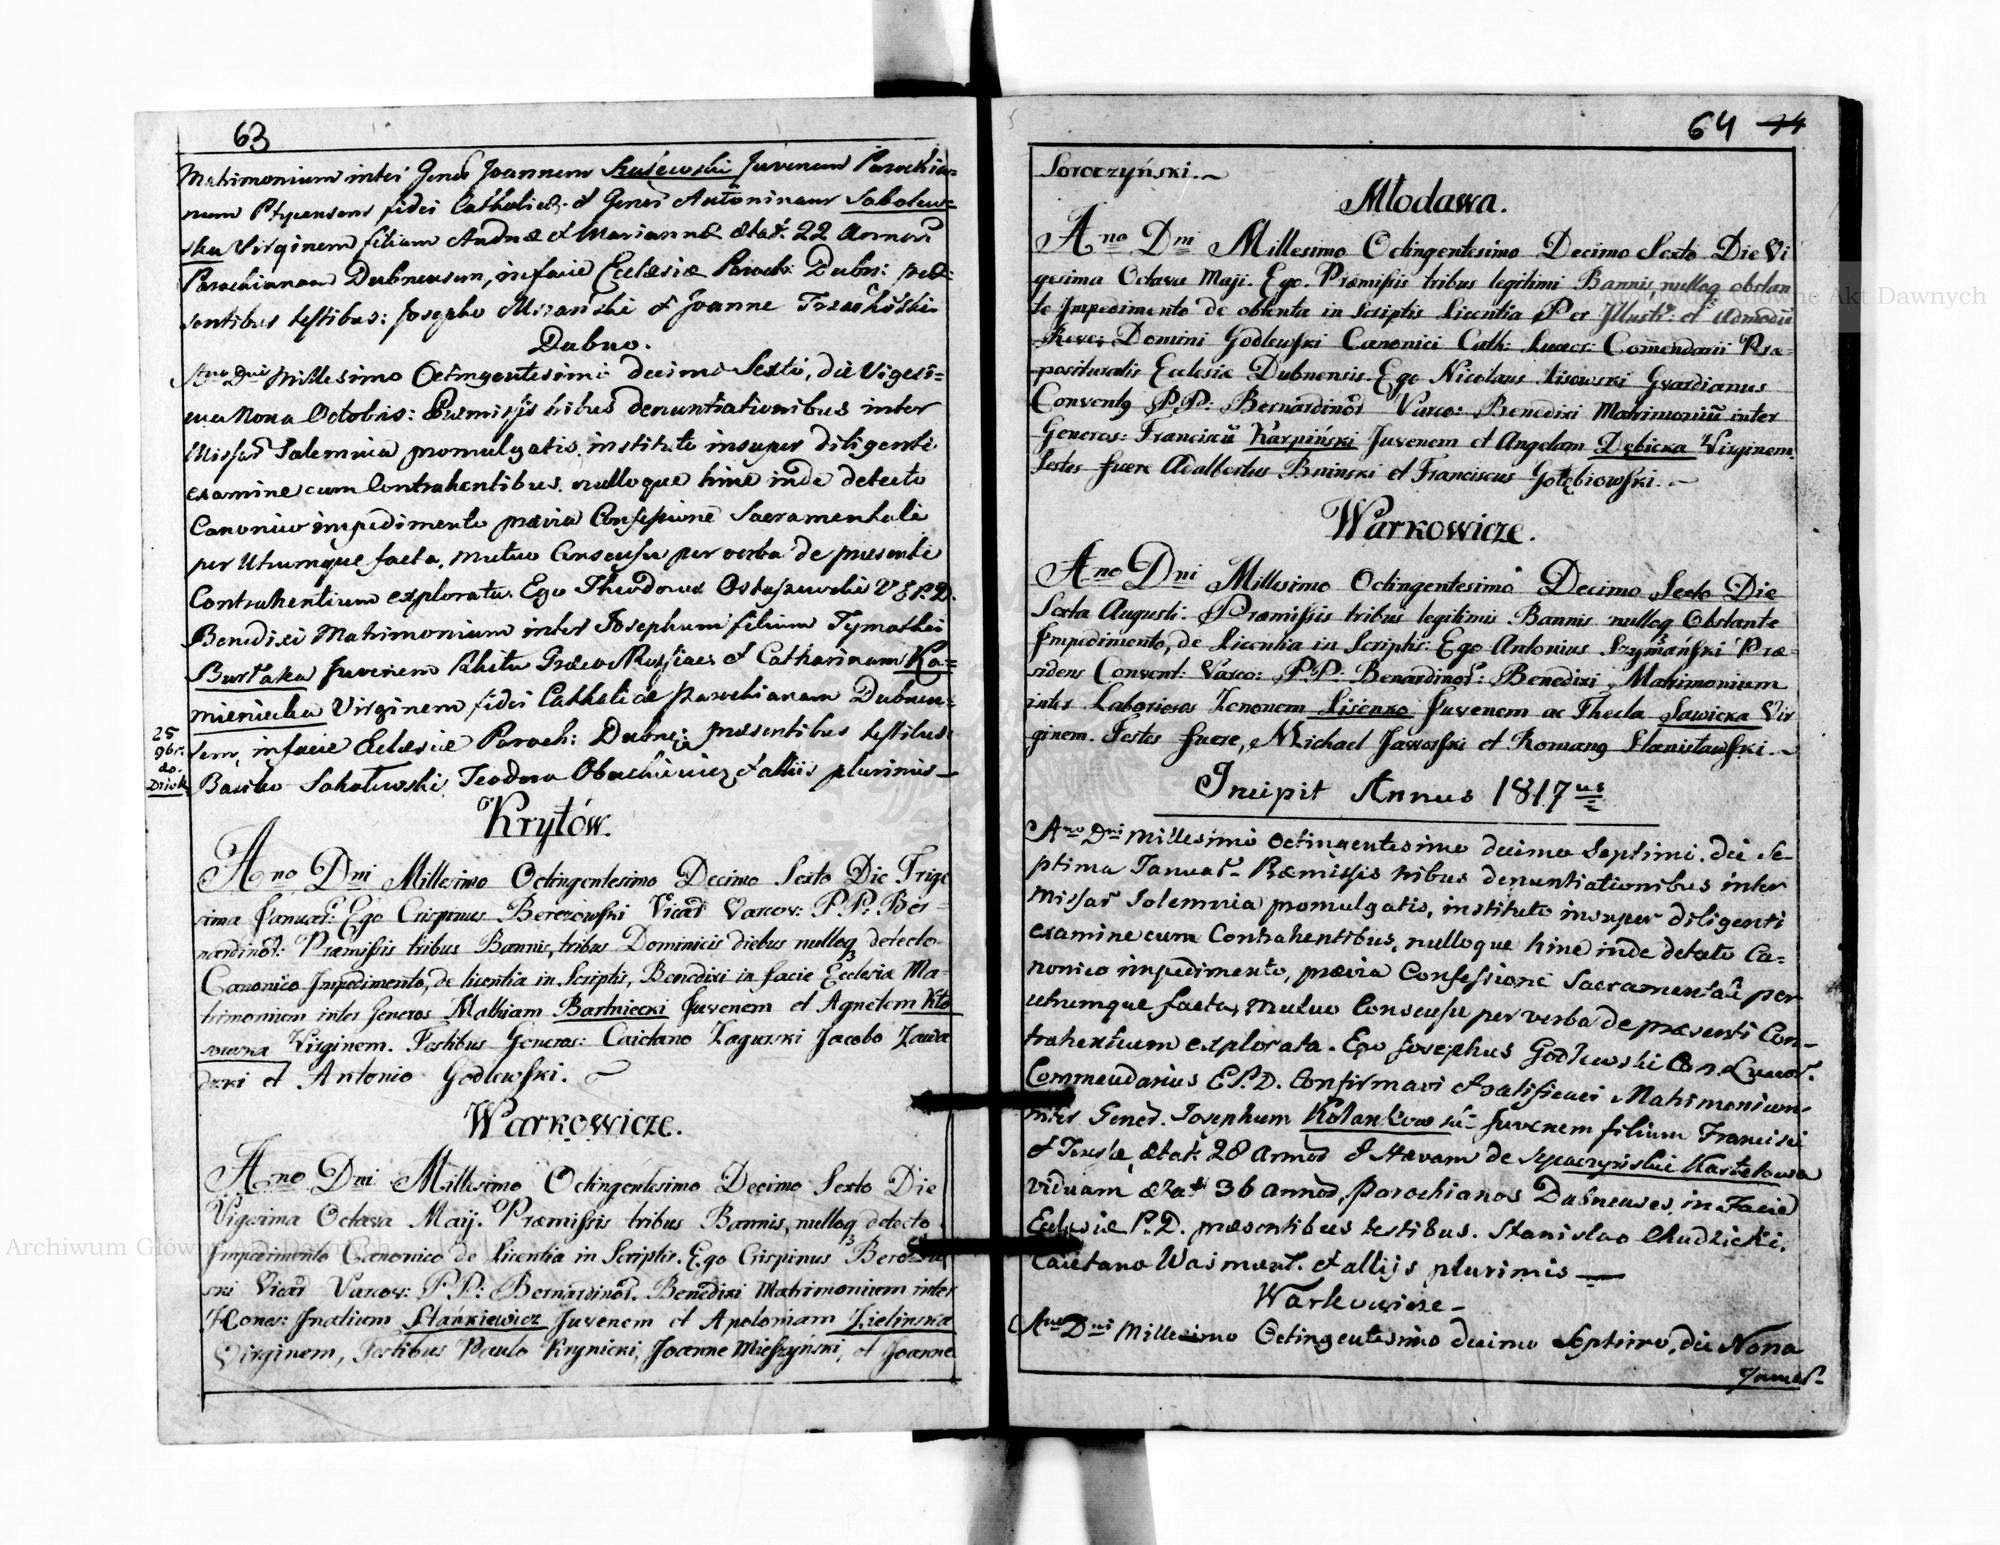 63
Matrimonium inter Gener Joannem Kulewski Juvenem Parochia-
num Ptycensem fidei Catholicæ et Generos Antoninam Sobolew-
ska Virginem filiam Andreæ et Mariannæ ætat: 22 Annor:
Parochianam Dubnensem, in facie Ecclesiæ Paroch: Dubn: præ-
sentibus testibus: Josepho et Joanne
Dubno.
Ano Dni Millesimo Octingentesimo decimo Sexto, die Vigesi-
ma Nona Octobris: Præmissis tribus denuntiationibus inter
Missar Solemnia promulgatis, instituto insuper diligenti
examine cum Contrahentibus, nulloque hinc inde detecto
Canonico impedimento prævia Confessione Sacramentali
per Utrumque facta, mutuo Consensu per verba de præsenti
Contrahentium explorato. Ego Theodorus Ostaszewski V E P. D.
Benedixi Matrimonium inter Josephum filium Tymothei
Burlaka Juvenem Ritu Græco Russiaci et Catharinam Ka-
mieniecka Virginem fidei Catholicæ Parochianam Dubnen-
25
9br:
do
sem, in facie Ecclesiæ Paroch: Dubne: præsentibus testibus
Basilio Sokołowski, Teodoro Obuchiewicz et alliis plurimis
Kryłów.
Ano Dni Millesimo Octingentesimo Decimo Sexto Die Trige
sima Januar: Ego Crispinus Berezowski Vicar Varcov: P.P: Ber-
nardinor: Præmissis tribus Bannis, tribus Dominicis diebus nulloq detecto
Canonico Impedimento, de licentia in Scriptis, Benedixi in facie Ecclesiæ Ma-
trimonium inter Generos Mathiam Bartniecki Juvenem et Agnetem Kło
sowska Virginem. Testibus Generos: Caietano Zagurski Jacobo Zawa
dzki et Antonio Godlewski.
Warkowicze.
Ano Dni Millesimo Octingentesimo Decimo Sexto Die
Vigesima Octava Maij. Præmissis tribus Bannis, nulloq detecto
Impedimento Canonico de licentia in Scriptis. Ego Crispinus Berezow
ski Vicar Varcov: P.P: Bernardinor. Benedixi Matrimonium inter
Hones: Jnatium Stankiewicz Juvenem et Apoloniam Zielinska
Virginem, Testibus Paulo Krynicki, Joanne Mieszyński, et Joanne
64 74
Soroczyński.
Młodawa.
Ano Dni Millesimo Octingentesimo Decimo Sexto Die Vi
gesima Octava Maji. Ego. Præmissis tribus legitimi Bannis nulloq obstan
te Impedimento de obtenta in Scriptis Licentia Per Illustr: et Admodū
Rever Domini Godlewski Canonici Cath: Luceor: Comendarii Præ-
posituralis Ecclesiæ Dubnensis Ego Nicolaus Lisowski Gvardianus
Conventq P.P: Bernardinor Varco: Benedixi Matrimoniū inter
Generos: Franciscū Karpiński Juvenem et Angelam Dębicka Virginem
Testes fuere Adalbertus Bninski et Franciscus Gołębiowski.
Warkowicze.
Ano Dni Millesimo Octingentesimo Decimo Sexto Die
Sexta Augusti: Præmissis tribus legitimis Bannis nulloq Obstante
Impedimento, de Licentia in Scriptis: Ego Antonius Szymański Præ-
sidens Convent: Varco: P.P: Benardinor: Benedixi Matrimonium
inter Laboriosos Zenonem Lisenko Juvenem ac Thecla Sawicka Vir
ginem. Testes fuere, Michael Jaworski et Romanq Stanisławski.
Incipit Annus 1817us
Ano Dni Millesimo Octingentesimo decimo Septimi. die Se-
ptima Januar Præmissis tribus denuntiationibus inter
Missar Solemnia promulgatis, instituto insuper diligenti
examine cum Contrahentibus, nulloque hinc inde detecto Ca-
nonico impedimento, prævia Confessione Sacramentali per
utrumque facta, Mutuo Consensu per verba de præsenti Con-
trahentium explorata. Ego Josephus Godlewski Can. Luceor.
Commendarius E.P.D. Confirmavi et ratificavi Matrimonium
inter Gener. Josephum Kolankowski Juvenem filium Francisci
et Teresiæ, ætat: 28 annor et Hævam de Karłełowa
viduam ætat 36 annor, parochianos Dubnenses, in Facie
Eclesiæ P.D. præsentibus testibus. Stanislao Chudzicki,
Caietano Wasment. et allijs plurimis
Warkowicze
Ano Dni Millesimo Octingentesimo decimo Septimo, die Nona
Januar
Archiwum Główne Akt Dawnych
Archiwum Główne Akt Dawnych